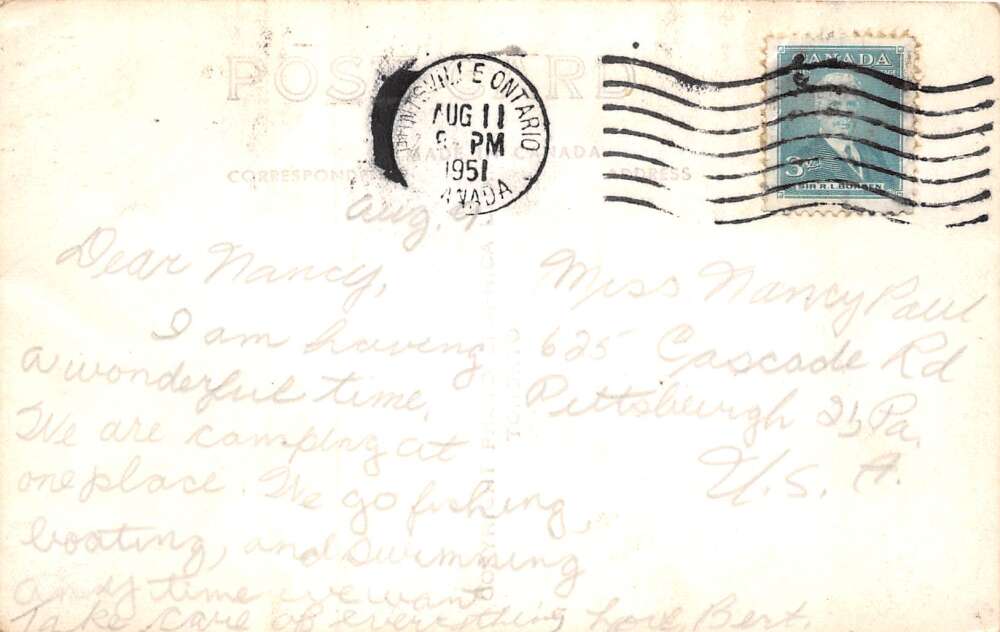 POST CARD
HUNTSVILLE ONTARIO
AUG 11
PM
1951
CANADA
CANADA
3
SIR R.L. BORDEN
MADE IN CANADA
CORRESPONDENCE ADDRESS
Aug. 9.
Dear Nancy,
I am having
a wonderful time.
We are camping at
one place. We go fishing,
boating, and swimming
any time we want
Take care of everything Love, Bert.
Miss Nancy Paul
625 Cascade Rd
Pittsburgh 21, Pa.
U.S.A.